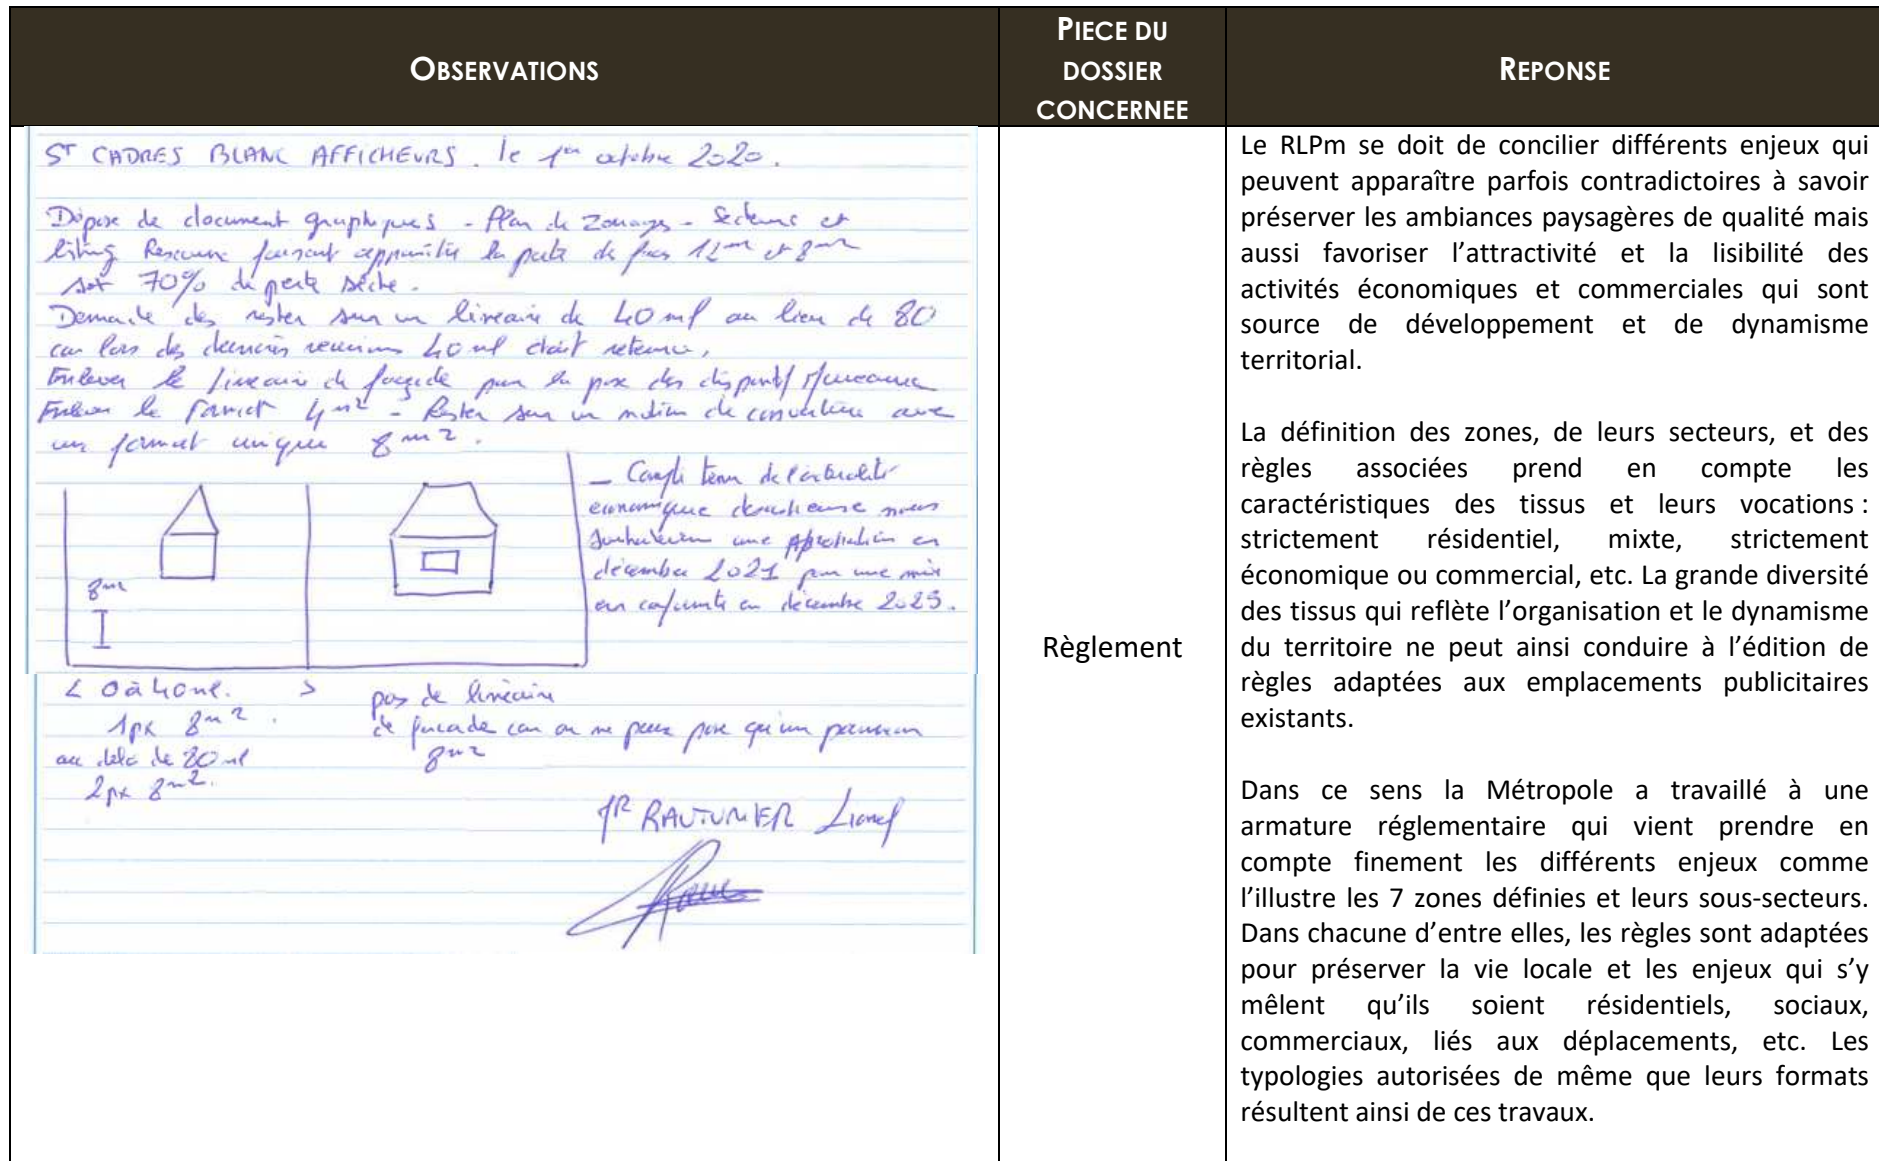 OBSERVATIONS
PIECE DU
DOSSIER
CONCERNEE
REPONSE
ST CADRES BLANC AFFICHEURS. le 1er octobre 2020.
Dépose de document graphiques - Plan de Zonages - Secteurs et
listing Reseaux faisant apparaitre la perte de faces 12m² et 8m²
soit 70% de perte sèche.
Demande de rester sur un lineaire de 40 ml au lieu de 80
car lors des dernieres reunions 40 ml etait retenue,
Enlever le lineaire de façade pour la pose des dispositif Muraux
Enlever le format 4m² - Rester sur un notion de avec
un format unique 8m².
- Compte tenu de l'actualité
economique nous
une Approbation en
décembre 2021 pour une mise
en conformité en décembre 2023.
8m²
< 0 à 40 ml. >
1px 8m².
au dela de 80 ml
2px 8m².
pas de lineaire
de facade car on ne peux pose qu'un panneau
8m²
MR RAUTURIER Lionel
Règlement
Le RLPm se doit de concilier différents enjeux qui
peuvent apparaître parfois contradictoires à savoir
préserver les ambiances paysagères de qualité mais
aussi favoriser l'attractivité et la lisibilité des
activités économiques et commerciales qui sont
source de développement et de dynamisme
territorial.
La définition des zones, de leurs secteurs, et des
règles associées prend en compte les
caractéristiques des tissus et leurs vocations :
strictement résidentiel, mixte, strictement
économique ou commercial, etc. La grande diversité
des tissus qui reflète l'organisation et le dynamisme
du territoire ne peut ainsi conduire à l'édition de
règles adaptées aux emplacements publicitaires
existants.
Dans ce sens la Métropole a travaillé à une
armature réglementaire qui vient prendre en
compte finement les différents enjeux comme
l'illustre les 7 zones définies et leurs sous-secteurs.
Dans chacune d'entre elles, les règles sont adaptées
pour préserver la vie locale et les enjeux qui s'y
mêlent qu'ils soient résidentiels, sociaux,
commerciaux, liés aux déplacements, etc. Les
typologies autorisées de même que leurs formats
résultent ainsi de ces travaux.